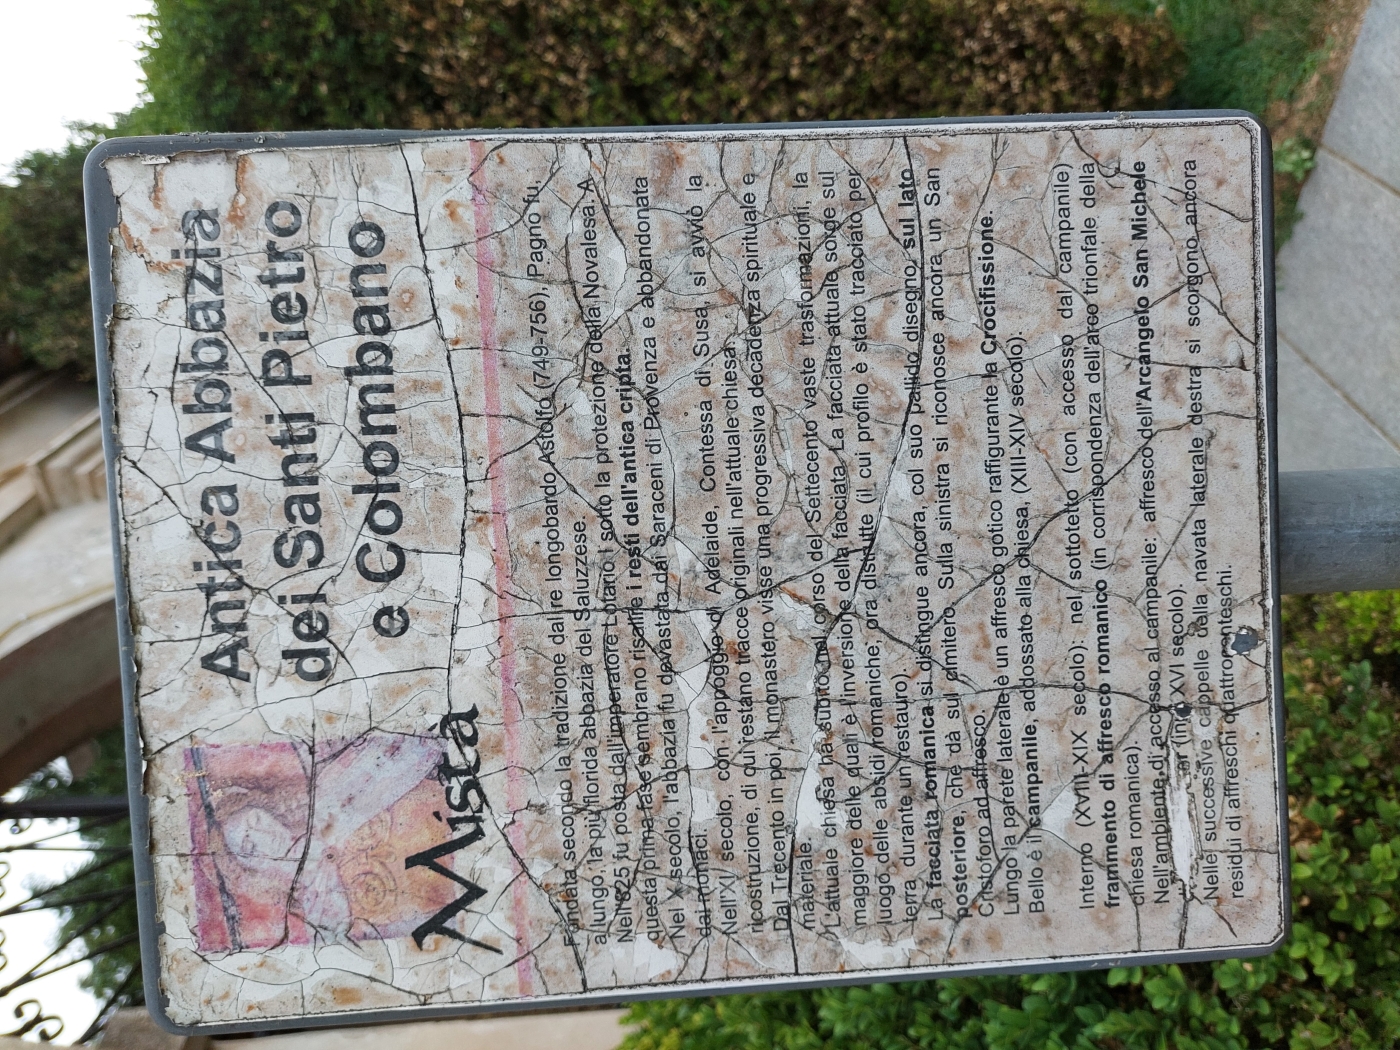 Antica Abbazia
dei Santi Pietro
e Colombano
Mista
Fondata secondo la tradizione dal re longobardo Astolfo (749-756), Pagno fu,
a lungo, la più florida abbazia del Saluzzese.
Nell'825 fu posta dall'imperatore Lotario I sotto la protezione della Novalesa. A
questa prima fase sembrano risalire i resti dell'antica cripta.
Nel X secolo, l'abbazia fu devastata dai Saraceni di Provenza e abbandonata
dai monaci.
Nell'XI secolo, con l'appoggio di Adelaide, Contessa di Susa, si avviò la
ricostruzione, di cui restano tracce originali nell'attuale chiesa.
Dal Trecento in poi il monastero visse una progressiva decadenza spirituale e
materiale.
L'attuale chiesa ha subito nel corso del Settecento vaste trasformazioni, la
maggiore delle quali è l'inversione della facciata. La facciata attuale sorge sul
luogo delle absidi romaniche, ora distrutte (il cui profilo è stato tracciato per
terra durante un restauro).
La facciata romanica si distingue ancora, col suo pallido disegno, sul lato
posteriore, che dà sul cimitero. Sulla sinistra si riconosce ancora un San
Cristoforo ad affresco.
Lungo la parete laterale è un affresco gotico raffigurante la Crocifissione.
Bello è il campanile, addossato alla chiesa, (XIII-XIV secolo).
Interno (XVIII-XIX secolo): nel sottotetto (con accesso dal campanile)
frammento di affresco romanico (in corrispondenza dell'arco trionfale della
chiesa romanica).
Nell'ambiente di accesso al campanile: affresco dell'Arcangelo San Michele
(inizi XVI secolo).
Nelle successive cappelle della navata laterale destra si scorgono ancora
residui di affreschi quattrocenteschi.